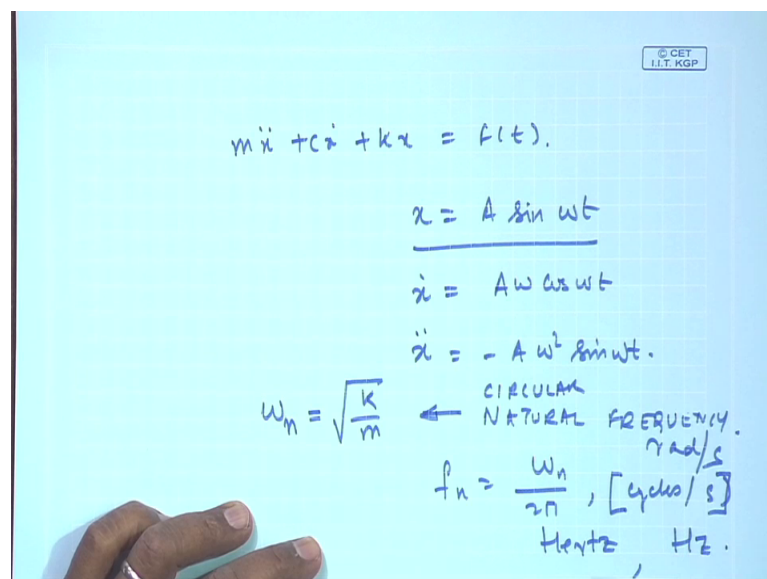 © CET
I.I.T. KGP
mẍ + cẋ + kx = f(t).
x = A sin ωt
ẋ = Aω cos ωt
ẍ = - Aω² sin ωt.
ωn = √(k/m) ← CIRCULAR
NATURAL FREQUENCY.
rad/s
fn = ωn/2π, [cycles/s]
Hertz, Hz.